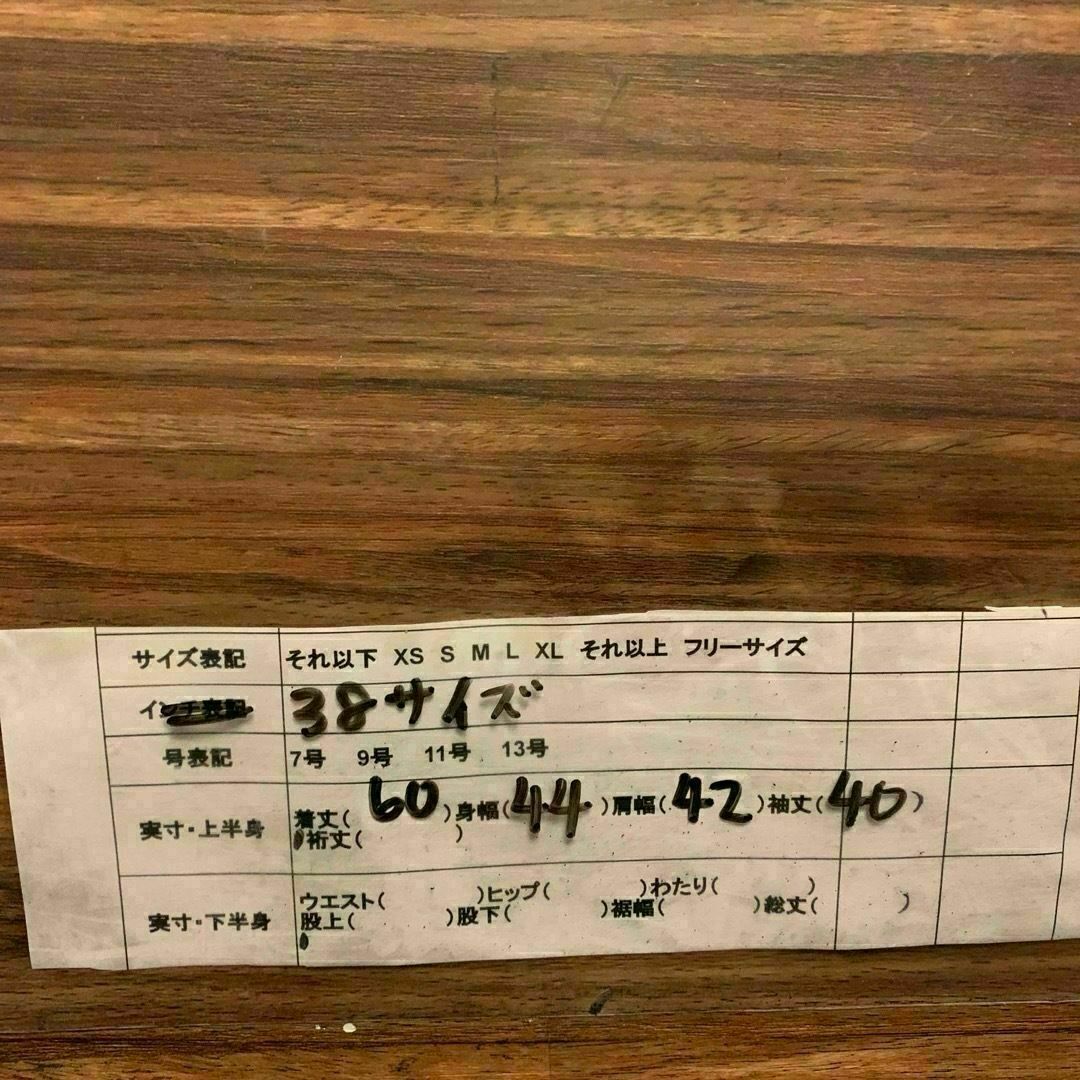 サイズ表記 それ以下 XS S M L XL それ以上 フリーサイズ
インチ表記 38サイズ
号表記 7号 9号 11号 13号
実寸・上半身 着丈( 60 )身幅( 44 )肩幅( 42 )袖丈( 40 )
裄丈( )
実寸・下半身 ウエスト( )ヒップ( )わたり( )
股上( )股下( )裾幅( )総丈( )